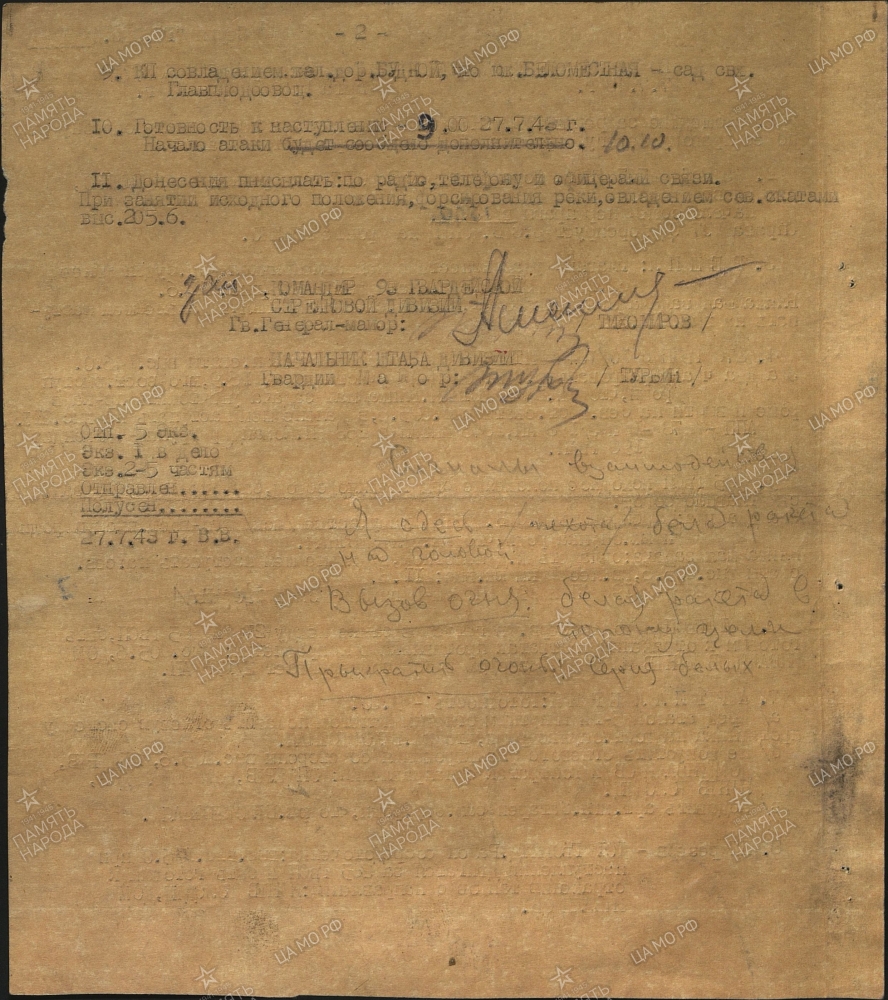 - 2 -
9. КП с овладением жел.дор.БУДНОЙ, что юж.БЕЛОМЕСТНАЯ - сад свх.
Главплодоовощ.
10. Готовность к наступлению - 9.00 27.7.43 г.
Начало атаки будет сообщено дополнительно. 10.10.
11. Донесения присылать:по радио,телефону и офицерами связи.
При занятии исходного положения,форсирования реки,овладением сев.скатами
выс.205.6.
КОМАНДИР 93 ГВАРДЕЙСКОЙ
СТРЕЛКОВОЙ ДИВИЗИИ
Гв.Генерал-майор: / ТИХОМИРОВ /
НАЧАЛЬНИК ШТАБА ДИВИЗИИ
Гвардии М а й о р: / ТУРЬИН /
Отп. 5 экз.
Экз. 1 в дело
Экз.2-5 частям
Отправлен......
Получен........
27.7.43 г. В.В.
Сигналы взаимодействия
Я здесь /пехота/ белая ракета
над головой
Вызов огня. белая ракета в
сторону цели
Прекратить огонь серия белых
ЦАМО.РФ
ПАМЯТЬ НАРОДА